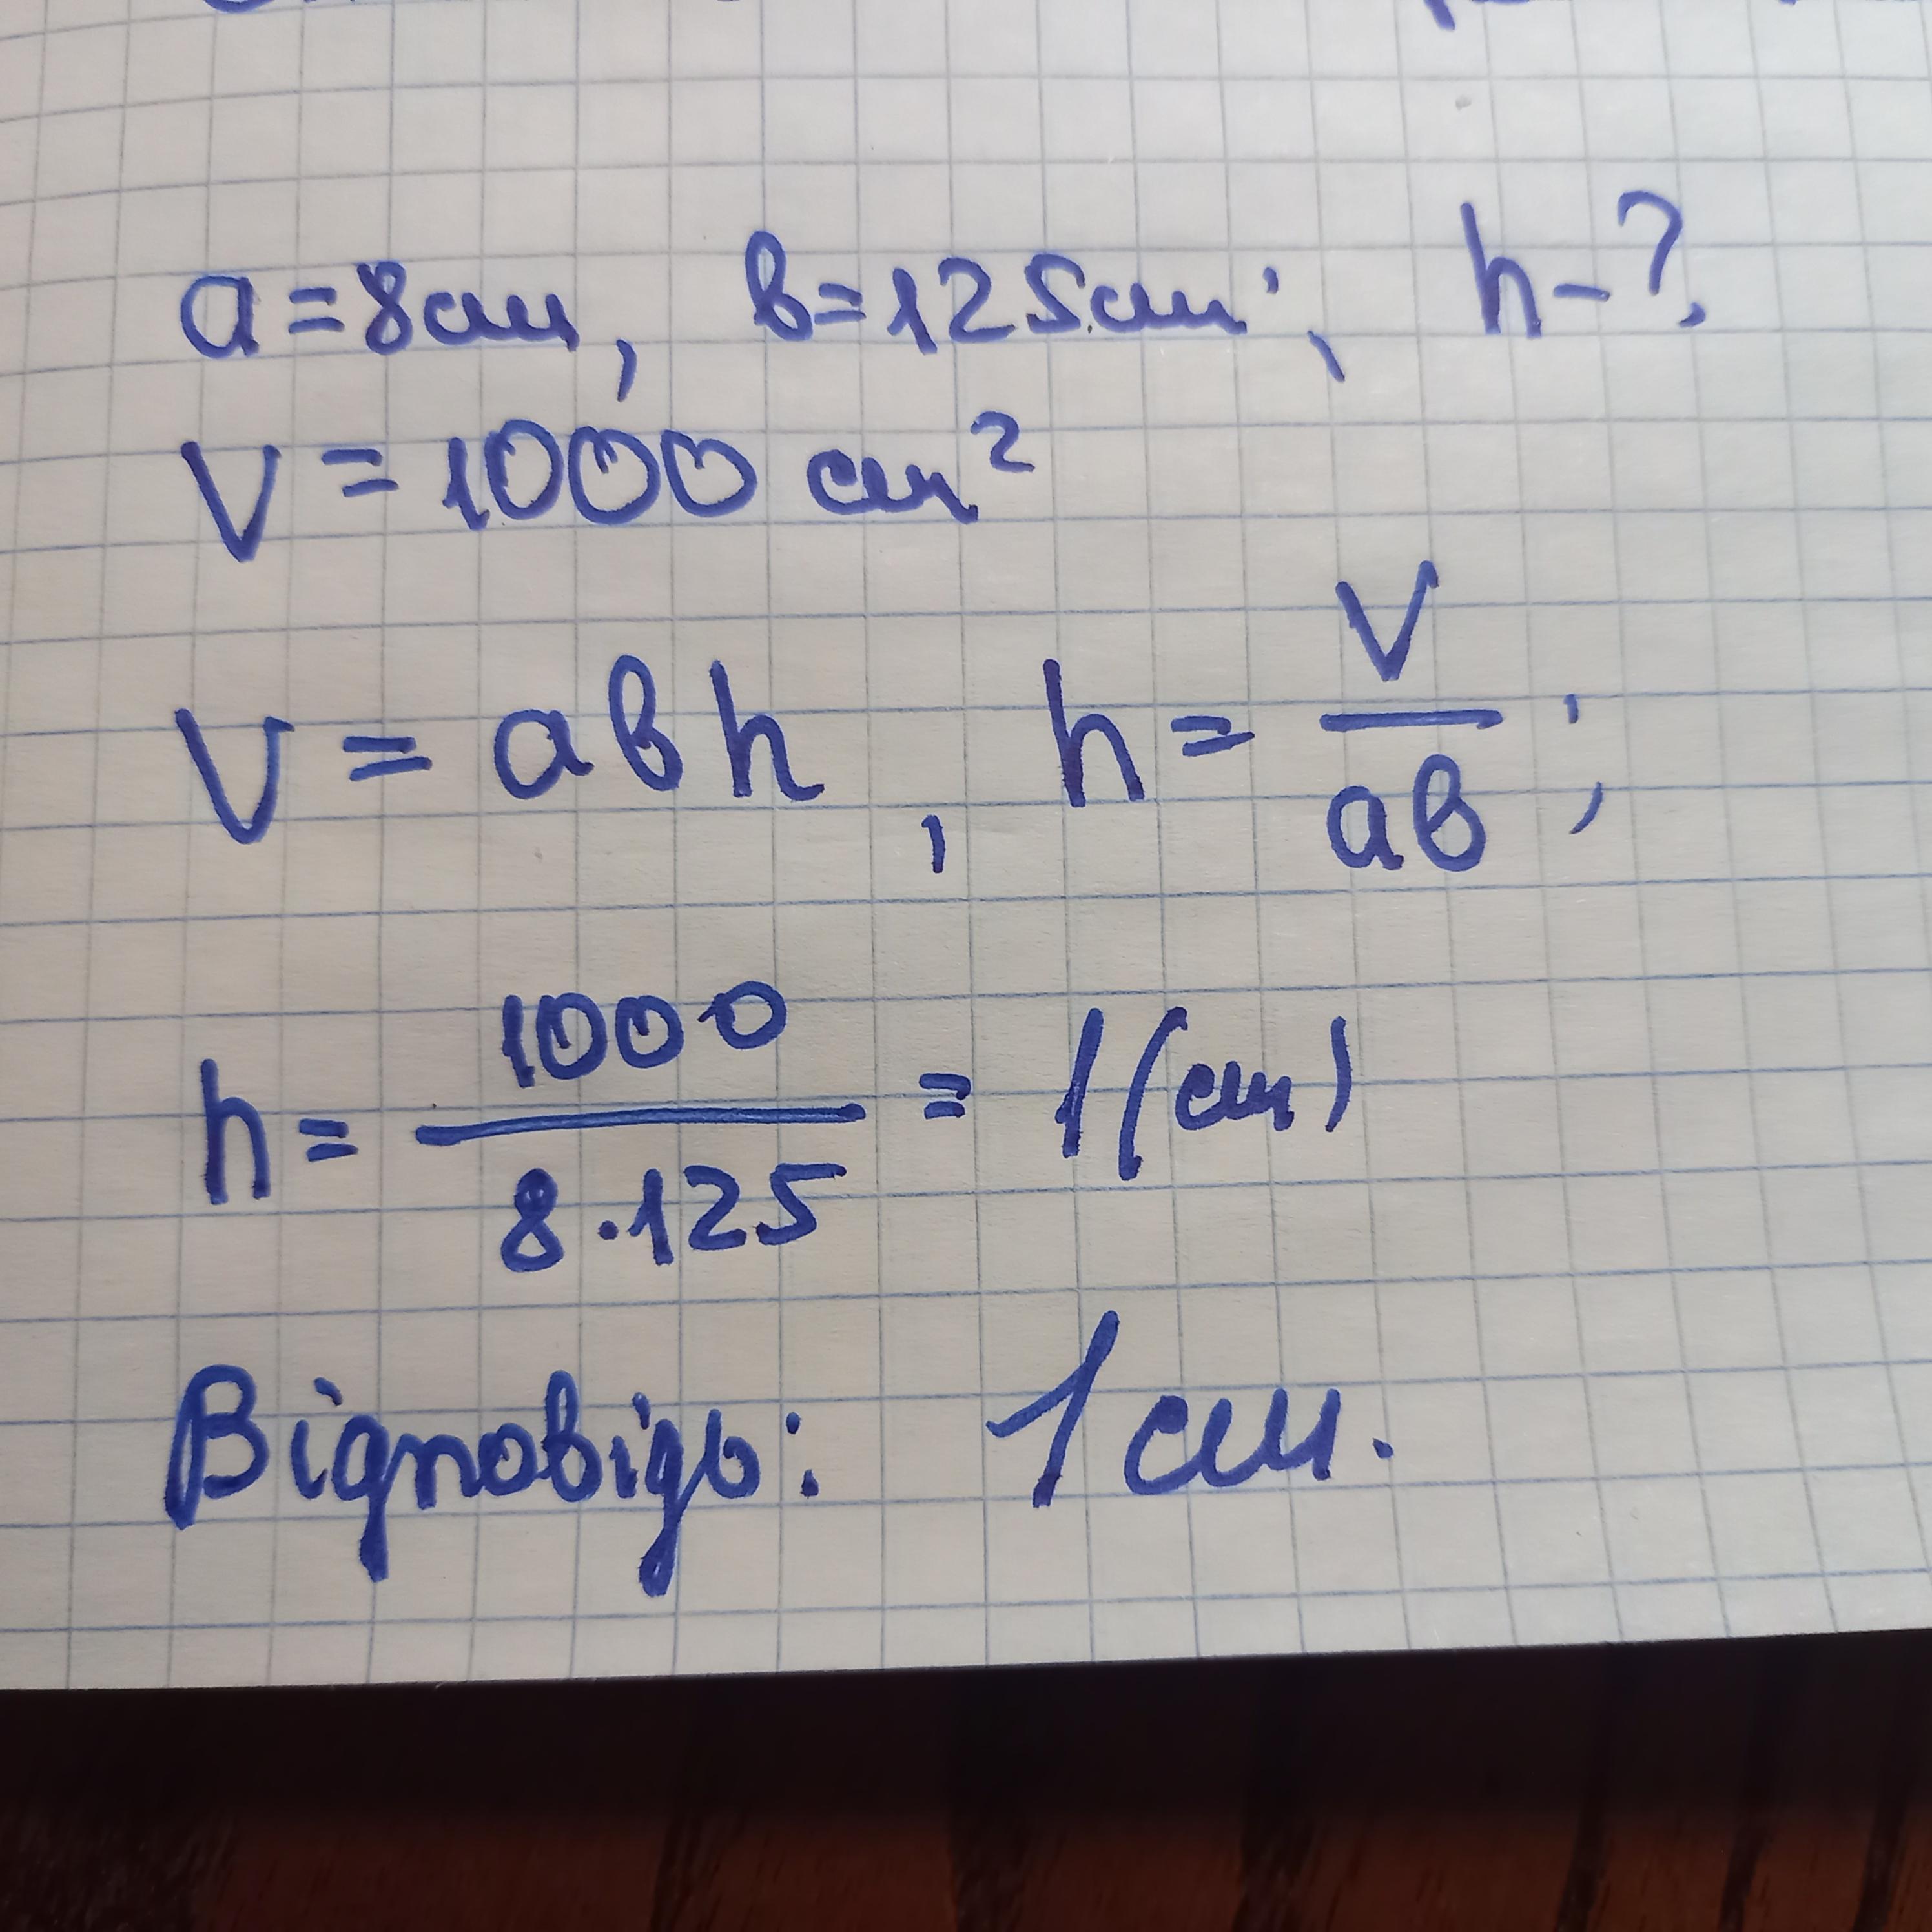 a = 8 см, в = 125 см; h - ?
V = 1000 см²
V = a в h, h = V / aв;
h = 1000 / 8 · 125 = 1 (см)
Відповідь: 1 см.